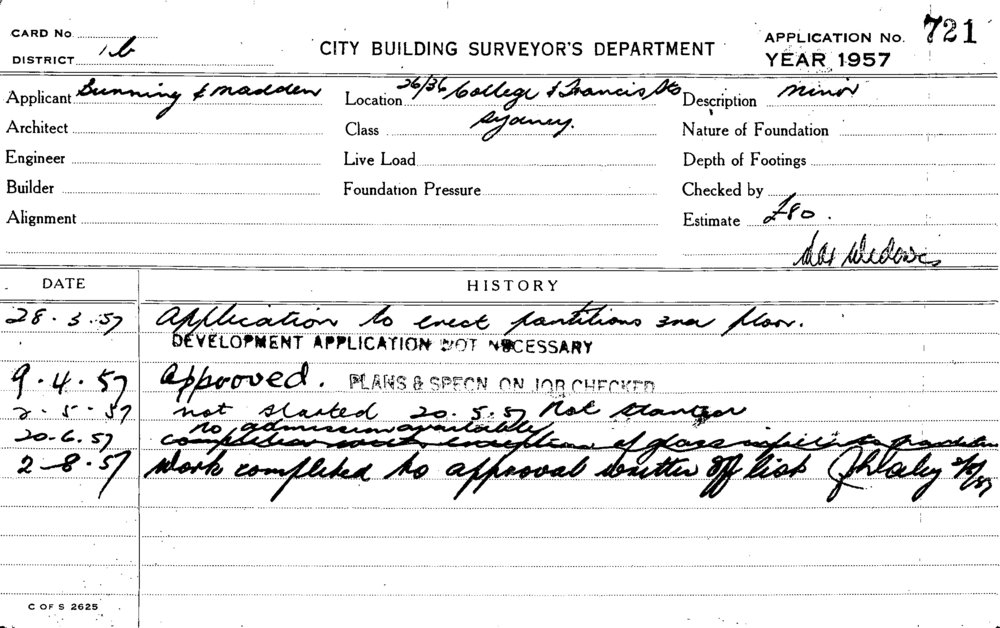 CARD No.
DISTRICT 1b
CITY BUILDING SURVEYOR'S DEPARTMENT
APPLICATION No. 721
YEAR 1957
Applicant Bunning & Madden
Location 26/36 College & Francis Sts
Description minor
Architect
Class Sydney.
Nature of Foundation
Engineer
Live Load
Depth of Footings
Builder
Foundation Pressure
Checked by
Alignment
Estimate £80.
DATE
HISTORY
28.3.57 Application to erect partitions 3rd floor.
DEVELOPMENT APPLICATION NOT NECESSARY
9.4.57 Approved. PLANS & SPECN ON JOB CHECKED
2.5.57 not started 20.5.57 Not started
no admission available
20.6.57 completion with exception of glass
2-8.57 Work completed to approval written off list
C OF S 2625